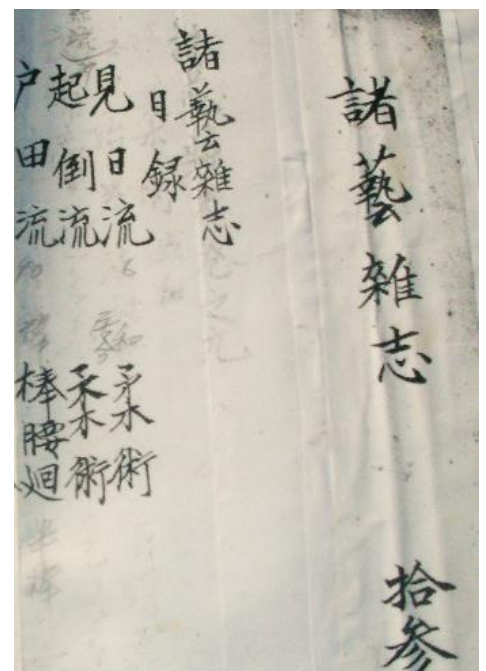 諸藝雜志
拾参
諸藝雜志
目録
見日流 柔術
起倒流 柔術
戸田流 棒腰廻